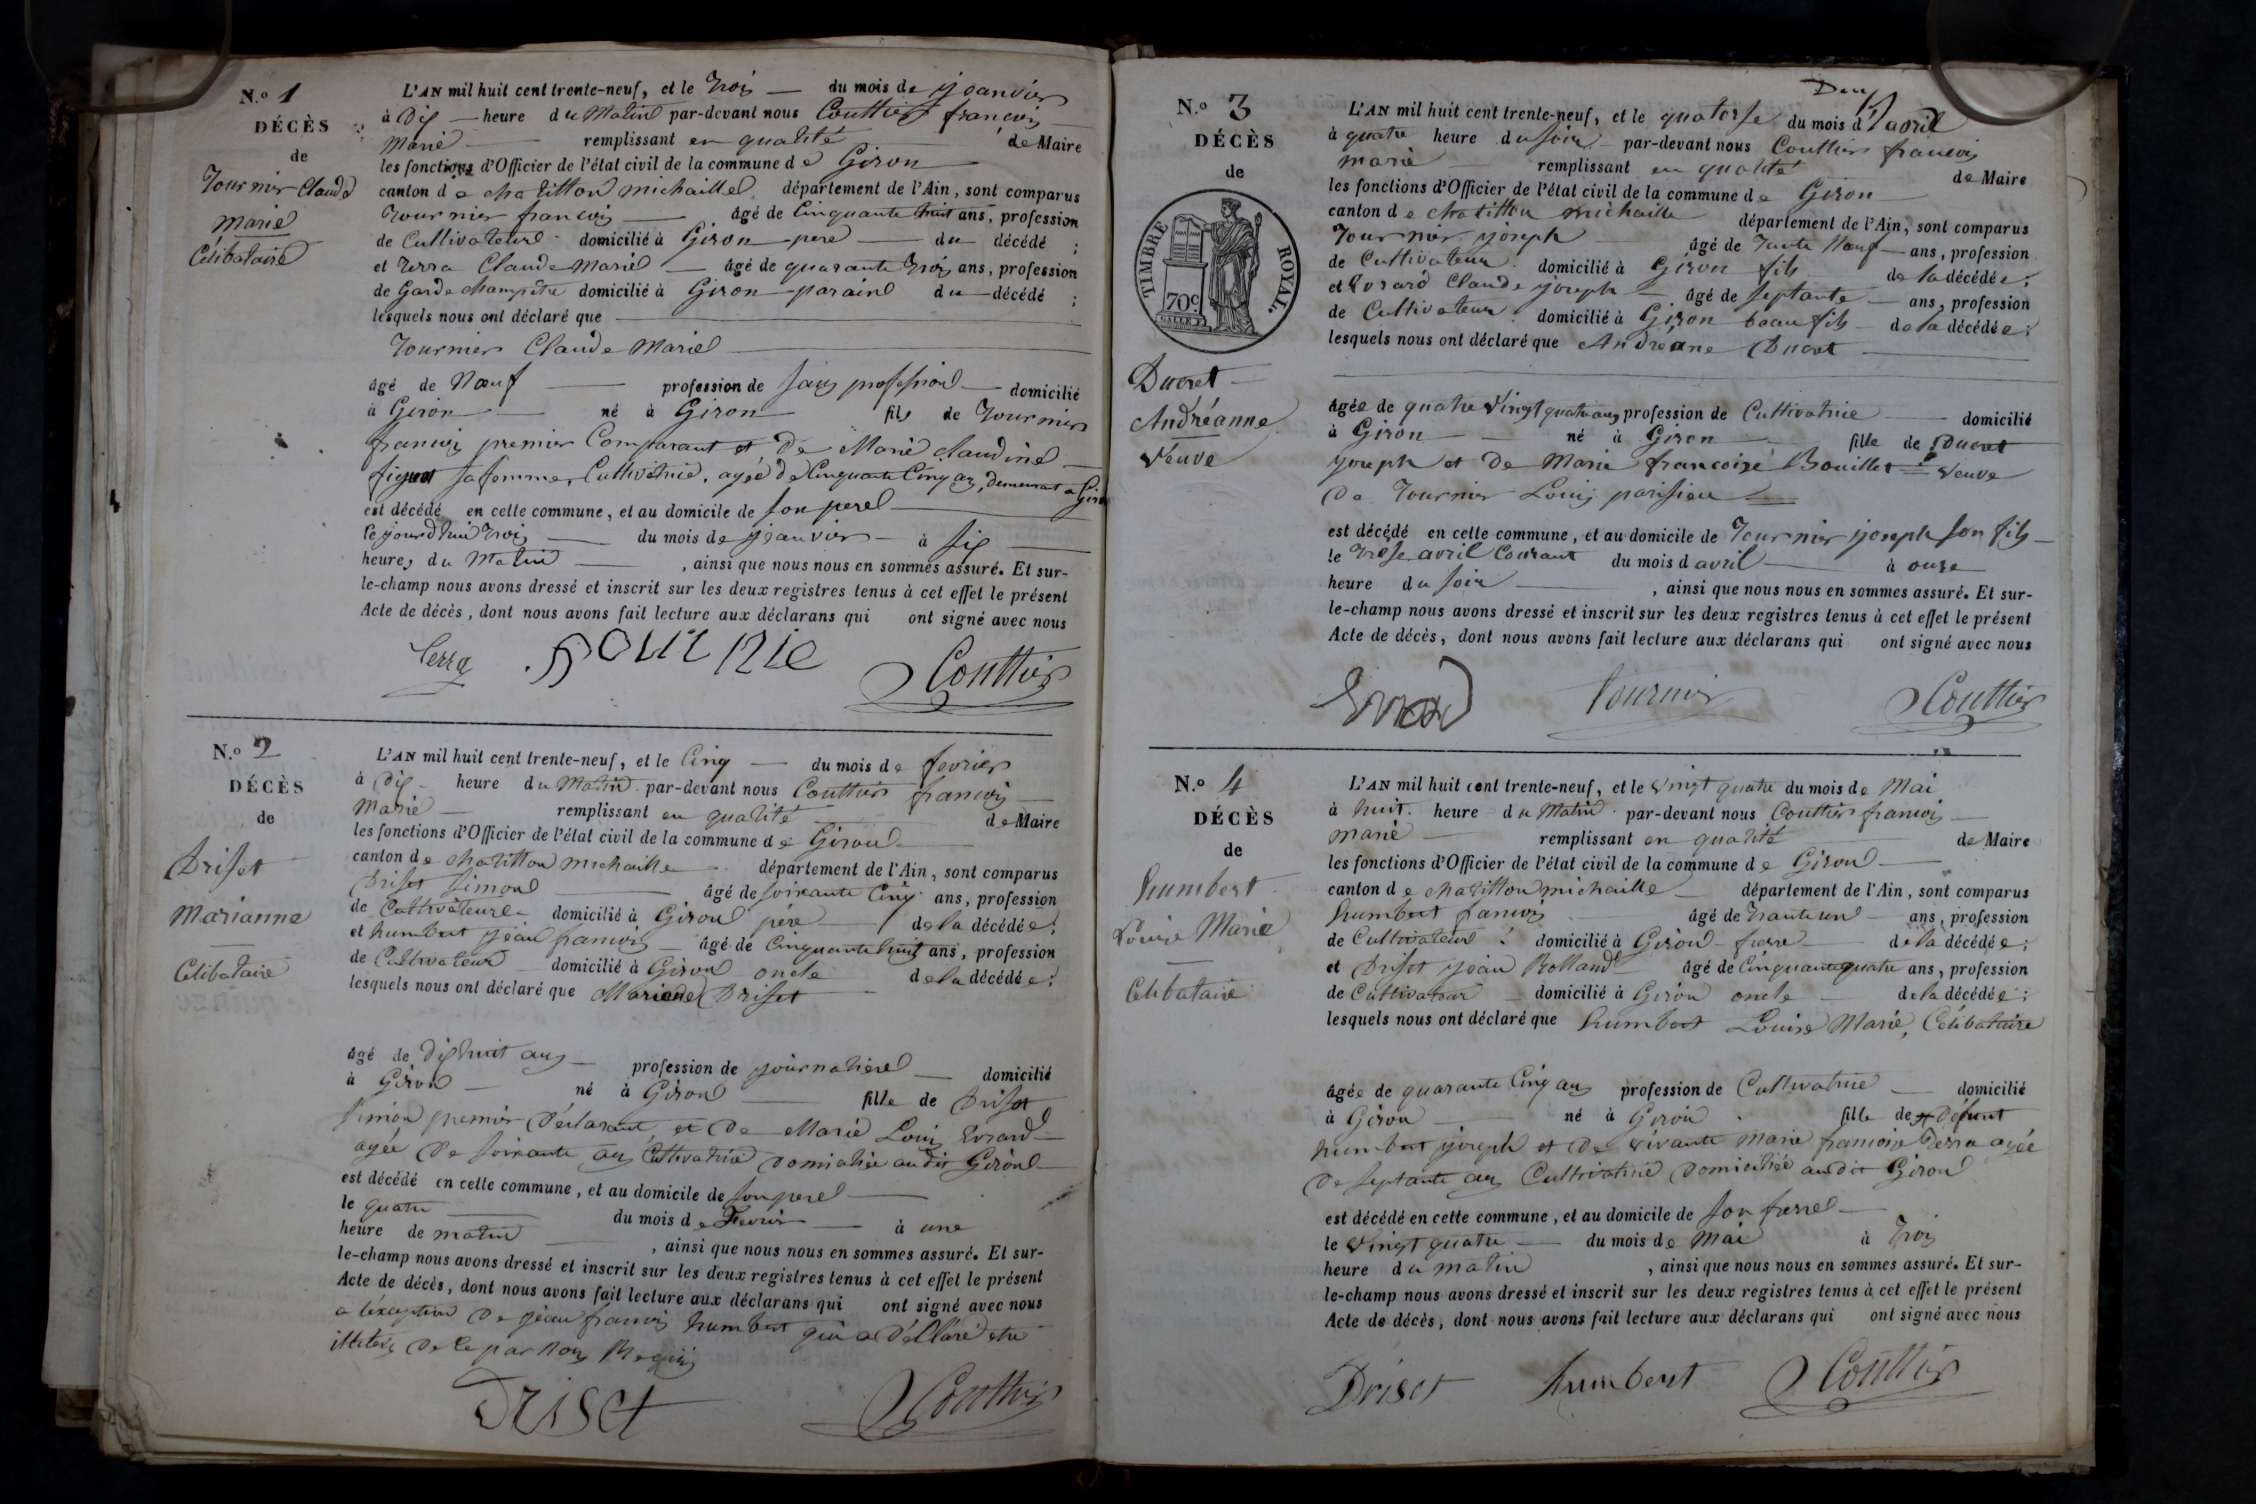 N.º 1
DÉCÈS
de
Tournier Claude
Marie
Célibataire
L'AN mil huit cent trente-neuf, et le trois du mois de janvier
à dix heure du Matin par-devant nous Couttier françois
Marie remplissant en qualité de Maire
les fonctions d'Officier de l'état civil de la commune de Giron
canton de chatillon michaille département de l'Ain, sont comparus
Tournier françois âgé de Cinquante huit ans, profession
de Cultivateur domicilié à Giron pere du décédé ;
et Terra Claude Marie âgé de quarante trois ans, profession
de Garde champêtre domicilié à Giron parain du décédé ;
lesquels nous ont déclaré que
Tournier Claude Marie
âgé de Nœuf profession de sans profession domicilié
à Giron né à Giron fils de Tournier
françois premier Comparant et de Marie claudine
sa femme Cultivatrice, agée de Cinquante Cinq ans, demeurant a Giron
est décédé en cette commune, et au domicile de son pere
le jourdhui trois du mois de janvier à six
heures du Matin , ainsi que nous nous en sommes assuré. Et sur-
le-champ nous avons dressé et inscrit sur les deux registres tenus à cet effet le présent
Acte de décès, dont nous avons fait lecture aux déclarans qui ont signé avec nous
Terra Tournie Couttier
N.º 2
DÉCÈS
de
Driset
Marianne
Celibataire
L'AN mil huit cent trente-neuf, et le Cinq du mois de fevrier
à dix heure du Matin par-devant nous Couttier françois
Marie remplissant en qualité de Maire
les fonctions d'Officier de l'état civil de la commune de Giron
canton de chatillon michaille département de l'Ain, sont comparus
Driset Simon âgé de soixante Cinq ans, profession
de Cultivateur domicilié à Giron père de la décédée ;
et humbert jean françois âgé de Cinquante huit ans, profession
de Cultivateur domicilié à Giron oncle de la décédée ;
lesquels nous ont déclaré que Driset
âgé de dix huit ans profession de journaliere domicilié
à Giron né à Giron fille de Driset
simon premier déclarant et de Marie Louis Evrard
agée de soixante ans Cultivatrice domicilié audit Giron
est décédé en cette commune, et au domicile de son pere
le quatre du mois de Fevrier à une
heure de matin , ainsi que nous nous en sommes assuré. Et sur-
le-champ nous avons dressé et inscrit sur les deux registres tenus à cet effet le présent
Acte de décès, dont nous avons fait lecture aux déclarans qui ont signé avec nous
a lexception de jean françois humbert qui a déclaré etre
illiteré de ce par nous Requis
Driset Couttier
N.º 3
DÉCÈS
de
TIMBRE ROYAL.
70c
Ducret
Andréanne
Veuve
L'AN mil huit cent trente-neuf, et le quatorse du mois d'avril
à quatre heure du soir par-devant nous Couttier françois
marie remplissant en qualité de Maire
les fonctions d'Officier de l'état civil de la commune de Giron
canton de chatillon michaille département de l'Ain, sont comparus
Tournier joseph âgé de Trente Nœuf ans, profession
de Cultivateur domicilié à Giron fils de la décédée ;
et Evrard Claude joseph âgé de septante ans, profession
de Cultivateur domicilié à Giron beau fils de la décédée ;
lesquels nous ont déclaré que Andréane Ducret
âgée de quatre Vingt quatre ans profession de Cultivatrice domicilié
à Giron né à Giron fille de Ducret
joseph et de Marie françoise Bouillet Veuve
de Tournier Louis parisien
est décédé en cette commune, et au domicile de Tournier joseph son fils
le treise avril Courant du mois d avril à onse
heure du soir , ainsi que nous nous en sommes assuré. Et sur-
le-champ nous avons dressé et inscrit sur les deux registres tenus à cet effet le présent
Acte de décès, dont nous avons fait lecture aux déclarans qui ont signé avec nous
Evrard Tournier Couttier
N.º 4
DÉCÈS
de
humbert
Louise Marie
Celibataire
L'AN mil huit cent trente-neuf, et le vingt quatre du mois de Mai
à huit heure du Matin par-devant nous Couttier françois
marie remplissant en qualité de Maire
les fonctions d'Officier de l'état civil de la commune de Giron
canton de chatillon michaille département de l'Ain, sont comparus
humbert françois âgé de trante un ans, profession
de Cultivateur domicilié à Giron frere de la décédée ;
et Driset jean Rolland âgé de Cinquante quatre ans, profession
de Cultivateur domicilié à Giron oncle de la décédée ;
lesquels nous ont déclaré que humbert Louise Marie, Célibataire
âgée de quarante Cinq ans profession de Cultivatrice domicilié
à Giron né à Giron fille de défunt
humbert joseph et de vivante Marie françoise Terra agée
de septante ans Cultivatrice domiciliée audit Giron
est décédé en cette commune, et au domicile de son frere
le Vingt quatre du mois de Mai à trois
heure du matin , ainsi que nous nous en sommes assuré. Et sur-
le-champ nous avons dressé et inscrit sur les deux registres tenus à cet effet le présent
Acte de décès, dont nous avons fait lecture aux déclarans qui ont signé avec nous
Driset humbert Couttier